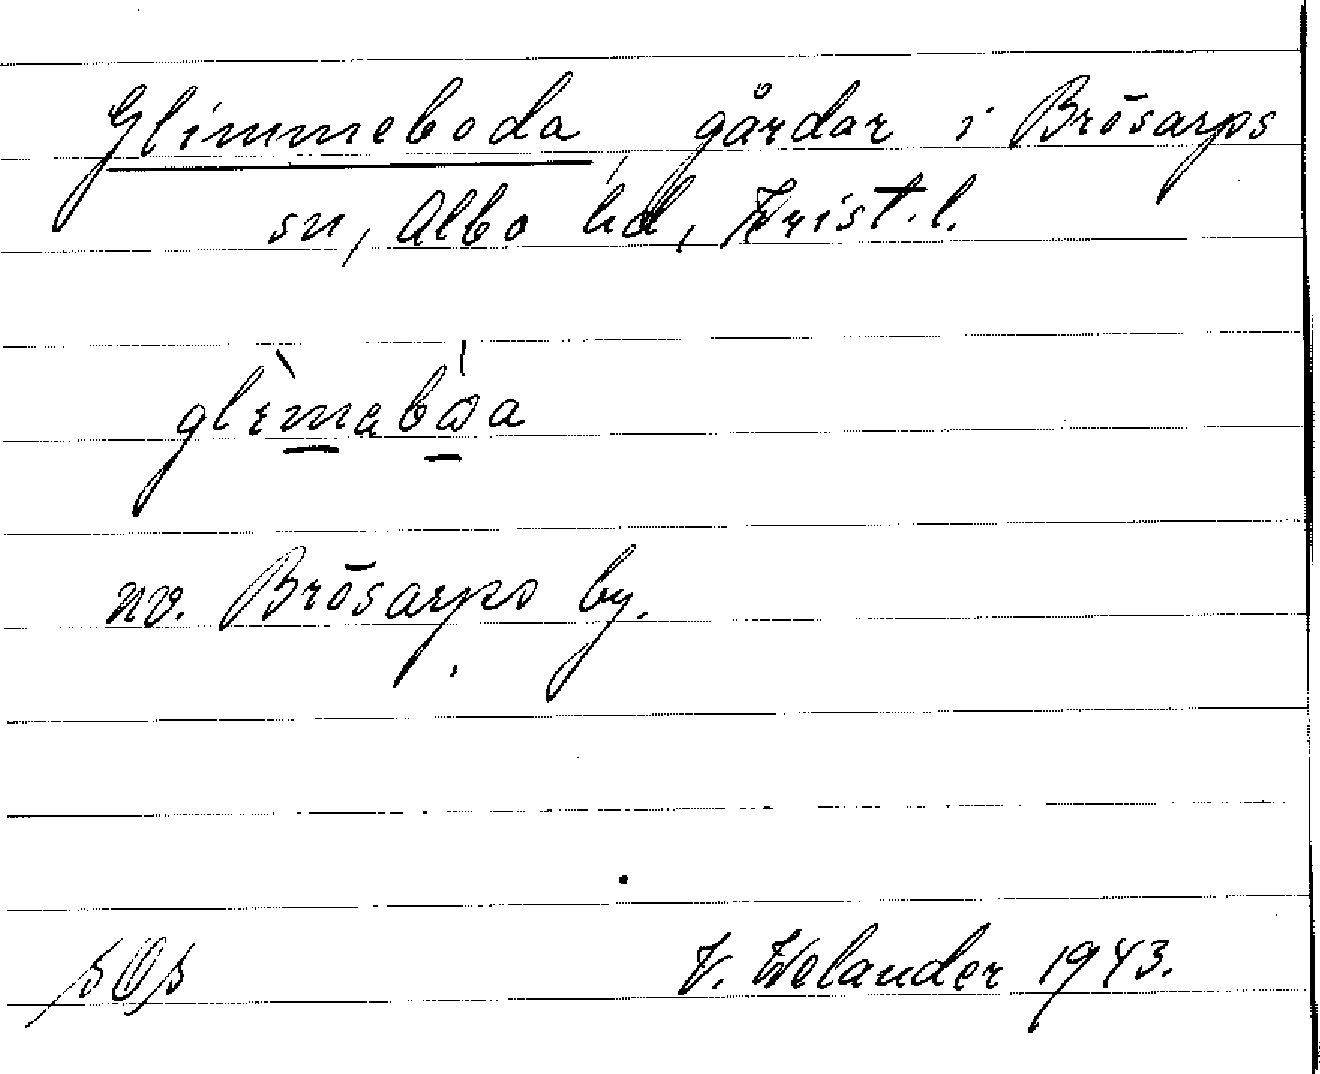 Glimmeboda, gårdar i Brösarps
sn, Albo hd, Krist. l.
nv. Brösarps by.
V. Welander 1943.